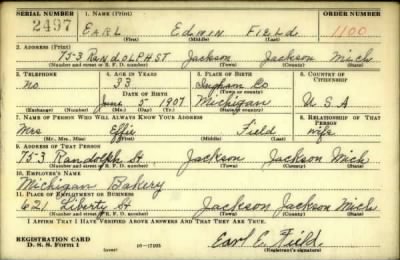 SERIAL NUMBER 1. NAME (Print) ORDER NUMBER
2497 EARL EDWIN FIELD 1100
(First) (Middle) (Last)
2. ADDRESS (Print)
753 RANDOLPH ST Jackson Jackson Mich
(Number and street or R. F. D. number) (Town) (County) (State)
3. TELEPHONE 4. AGE IN YEARS 5. PLACE OF BIRTH 6. COUNTRY OF CITIZENSHIP
No 33 Ingham Co
DATE OF BIRTH (Town or county)
June 5 1907 Michigan U S A
(Exchange) (Number) (Mo.) (Day) (Yr.) (State or country)
7. NAME OF PERSON WHO WILL ALWAYS KNOW YOUR ADDRESS 8. RELATIONSHIP OF THAT PERSON
Mrs Effie Field wife
(Mr., Mrs., Miss) (First) (Middle) (Last)
9. ADDRESS OF THAT PERSON
753 Randolph St. Jackson Jackson Mich
(Number and street or R. F. D. number) (Town) (County) (State)
10. EMPLOYER'S NAME
Michigan Bakery
11. PLACE OF EMPLOYMENT OR BUSINESS
621 Liberty St Jackson Jackson Mich
(Number and street or R. F. D. number) (Town) (County) (State)
I AFFIRM THAT I HAVE VERIFIED ABOVE ANSWERS AND THAT THEY ARE TRUE.
REGISTRATION CARD
D. S. S. FORM 1 16-17105 Earl E. Field
(Registrant's signature)